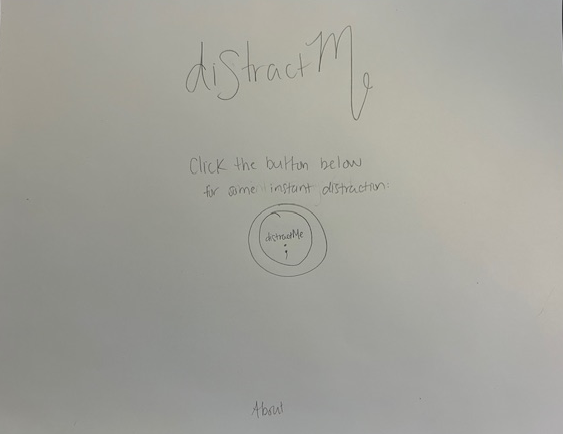 distractMe
Click the button below
for some instant distraction:
distractMe
;
About